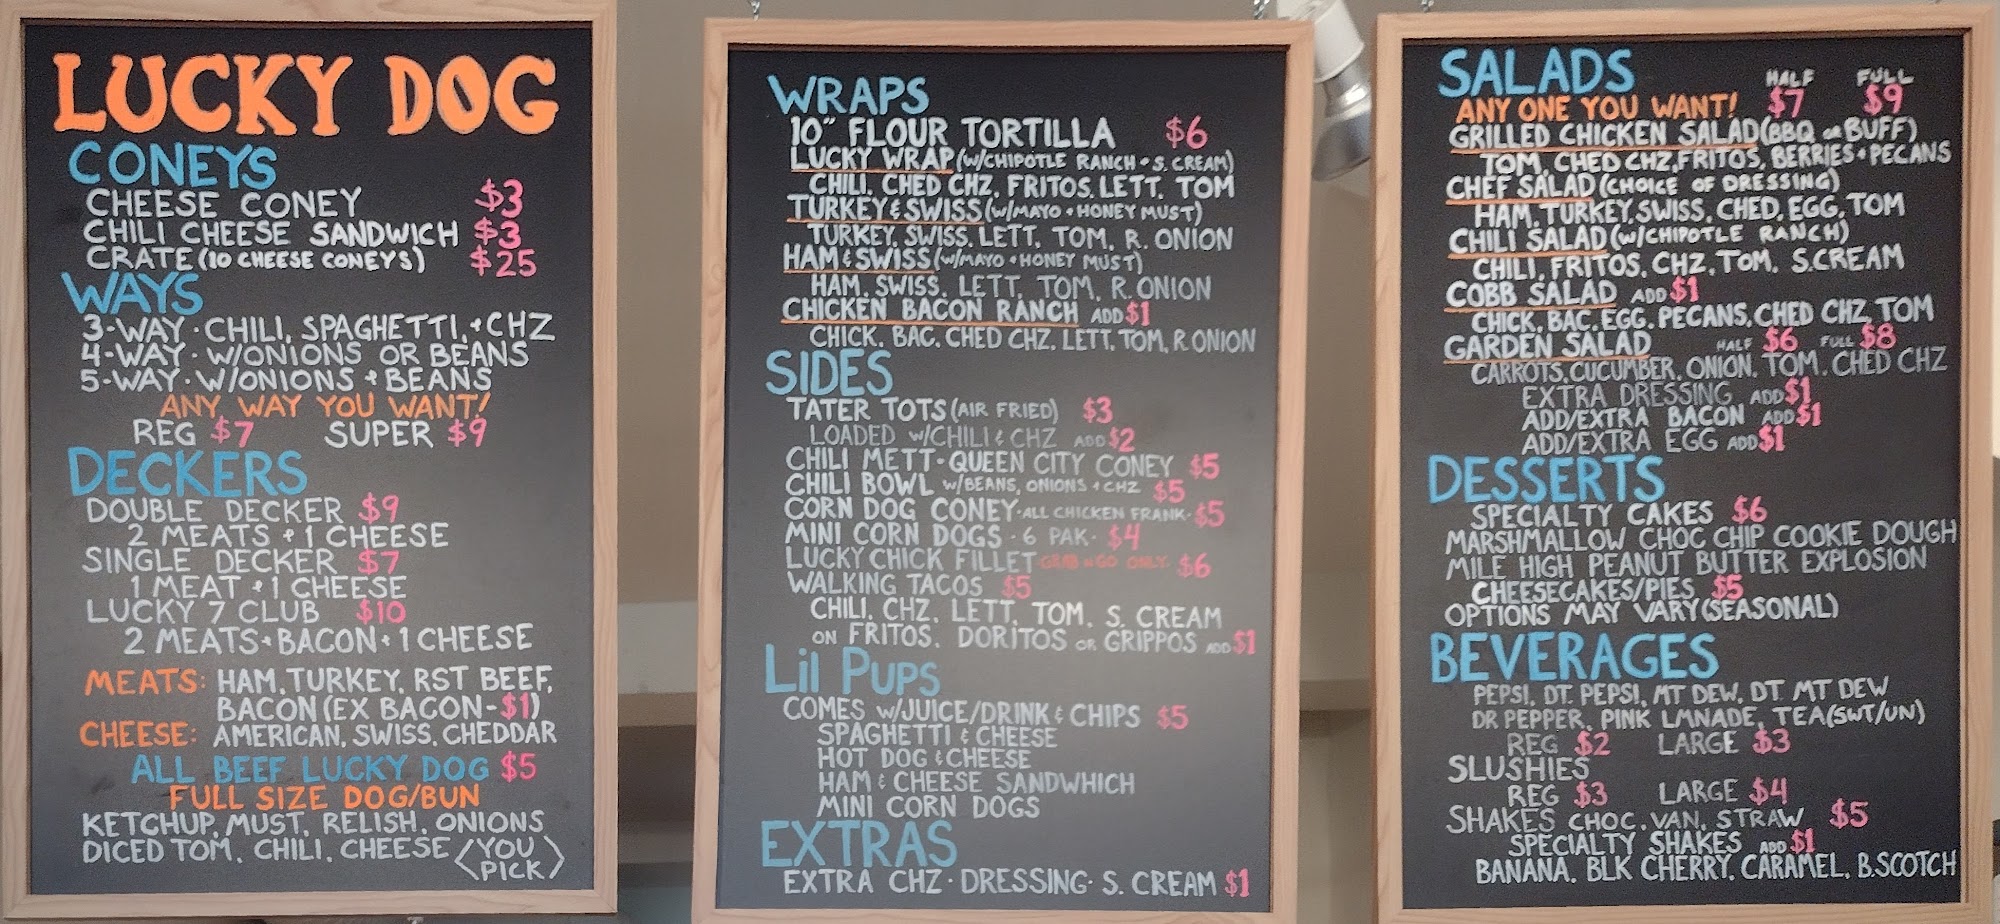 LUCKY DOG
CONEYS
CHEESE CONEY $3
CHILI CHEESE SANDWICH $3
CRATE (10 CHEESE CONEYS) $25
WAYS
3-WAY · CHILI, SPAGHETTI, + CHZ
4-WAY · W/ONIONS OR BEANS
5-WAY · W/ONIONS + BEANS
ANY WAY YOU WANT!
REG $7 SUPER $9
DECKERS
DOUBLE DECKER $9
2 MEATS + 1 CHEESE
SINGLE DECKER $7
1 MEAT + 1 CHEESE
LUCKY 7 CLUB $10
2 MEATS + BACON + 1 CHEESE
MEATS: HAM, TURKEY, RST BEEF,
BACON (EX BACON - $1)
CHEESE: AMERICAN, SWISS, CHEDDAR
ALL BEEF LUCKY DOG $5
FULL SIZE DOG/BUN
KETCHUP, MUST, RELISH, ONIONS
DICED TOM, CHILI, CHEESE <YOU PICK>
WRAPS
10" FLOUR TORTILLA $6
LUCKY WRAP (W/CHIPOTLE RANCH + S. CREAM)
CHILI, CHED CHZ, FRITOS, LETT, TOM
TURKEY & SWISS (W/MAYO + HONEY MUST)
TURKEY, SWISS, LETT, TOM, R. ONION
HAM & SWISS (W/MAYO + HONEY MUST)
HAM, SWISS, LETT, TOM, R. ONION
CHICKEN BACON RANCH ADD $1
CHICK, BAC, CHED CHZ, LETT, TOM, R ONION
SIDES
TATER TOTS (AIR FRIED) $3
LOADED W/CHILI & CHZ ADD $2
CHILI METT - QUEEN CITY CONEY $5
CHILI BOWL W/BEANS, ONIONS + CHZ $5
CORN DOG CONEY - ALL CHICKEN FRANK - $5
MINI CORN DOGS - 6 PAK - $4
LUCKY CHICK FILLET GRAB N GO ONLY $6
WALKING TACOS $5
CHILI, CHZ, LETT, TOM, S. CREAM
ON FRITOS, DORITOS OR GRIPPOS ADD $1
Lil PUPS
COMES W/JUICE/DRINK & CHIPS $5
SPAGHETTI & CHEESE
HOT DOG & CHEESE
HAM & CHEESE SANDWHICH
MINI CORN DOGS
EXTRAS
EXTRA CHZ · DRESSING · S. CREAM $1
SALADS HALF FULL
ANY ONE YOU WANT! $7 $9
GRILLED CHICKEN SALAD (BBQ OR BUFF)
TOM, CHED CHZ, FRITOS, BERRIES + PECANS
CHEF SALAD (CHOICE OF DRESSING)
HAM, TURKEY, SWISS, CHED, EGG, TOM
CHILI SALAD (W/CHIPOTLE RANCH)
CHILI, FRITOS, CHZ, TOM, S.CREAM
COBB SALAD ADD $1
CHICK, BAC, EGG, PECANS, CHED CHZ, TOM
GARDEN SALAD HALF $6 FULL $8
CARROTS, CUCUMBER, ONION, TOM, CHED CHZ
EXTRA DRESSING ADD $1
ADD/EXTRA BACON ADD $1
ADD/EXTRA EGG ADD $1
DESSERTS
SPECIALTY CAKES $6
MARSHMALLOW CHOC CHIP COOKIE DOUGH
MILE HIGH PEANUT BUTTER EXPLOSION
CHEESECAKES/PIES $5
OPTIONS MAY VARY (SEASONAL)
BEVERAGES
PEPSI, DT. PEPSI, MT DEW, DT. MT DEW
DR PEPPER, PINK LMNADE, TEA (SWT/UN)
REG $2 LARGE $3
SLUSHIES
REG $3 LARGE $4
SHAKES CHOC, VAN, STRAW $5
SPECIALTY SHAKES ADD $1
BANANA, BLK CHERRY, CARAMEL, B.SCOTCH